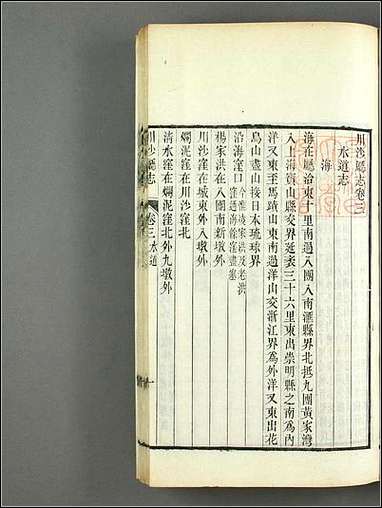 川沙廳志卷三
水道志
海
海在廳治東十里南過八團入南滙縣界北抵九團黃家灣
入上海寶山縣交界延袤三十六里東出崇明縣之南爲內
洋又東至馬蹟山東南過洋山交浙江界爲外洋又東出花
鳥山盡山接日本琉球界
沿海窪口今惟淩家洪及老洪
窪通海餘窪盡塞
楊家洪在八團南新墩外
川沙窪在城東外入墩外
爛泥窪在川沙窪北
清水窪在爛泥窪北外九墩外
川沙廳志
卷三 水道
一